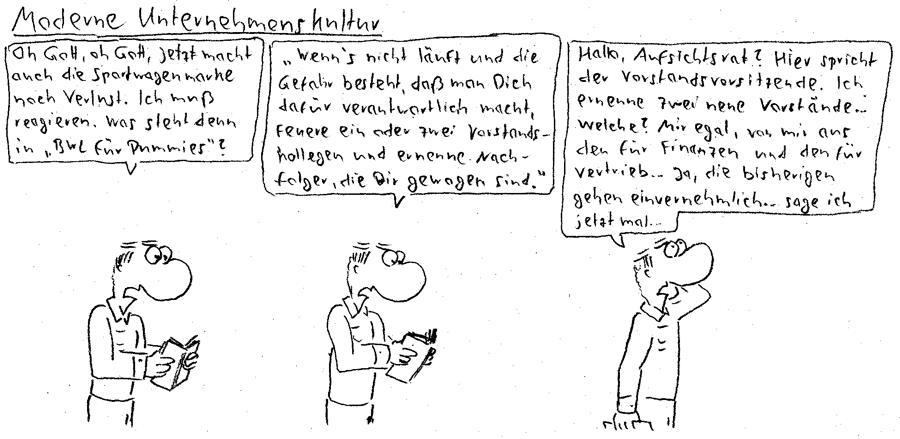 Moderne Unternehmenskultur
Oh Gott, oh Gott, jetzt macht
auch die Sportwagenmarke
noch Verlust. Ich muß
reagieren. Was steht denn
in „BWL für Dummies"?
„Wenn's nicht läuft und die
Gefahr besteht, daß man Dich
dafür verantwortlich macht,
feuere ein oder zwei Vorstands-
kollegen und ernenne Nach-
folger, die Dir gewogen sind."
Hallo, Aufsichtsrat? Hier spricht
der Vorstandsvorsitzende. Ich
ernenne zwei neue Vorstände...
Welche? Mir egal, von mir aus
den für Finanzen und den für
Vertrieb... Ja, die bisherigen
gehen einvernehmlich... sage ich
jetzt mal...